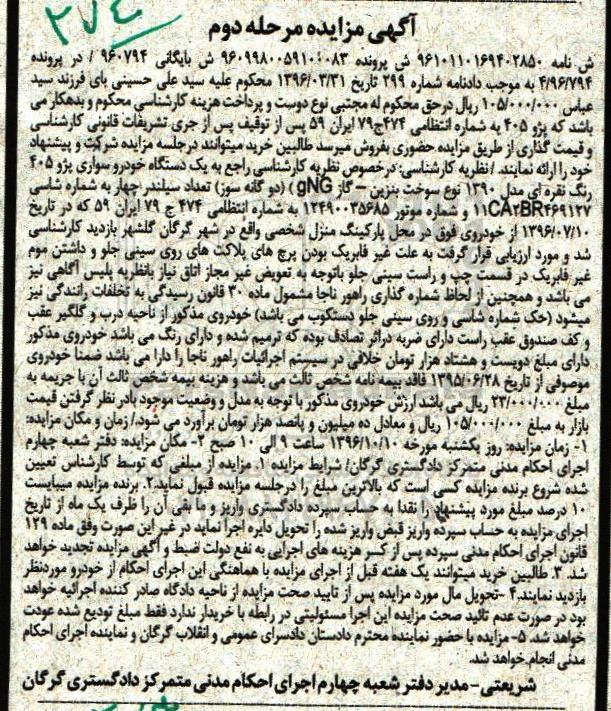 ۲۷۴
آگهی مزایده مرحله دوم
ش نامه ۹۶۱۰۱۱۰۱۶۹۴۰۲۸۵۰ ش پرونده ۹۶۰۹۹۸۰۰۵۹۱۰۰۰۸۳ ش بایگانی ۹۶۰۷۹۴ / در پرونده
۴/۹۶/۷۹۴ به موجب دادنامه شماره ۲۹۹ تاریخ ۱۳۹۶/۰۳/۳۱ محکوم علیه سید علی حسینی بای فرزند سید
عباس ۱۰۵/۰۰۰/۰۰۰ ریال درحق محکوم له مجتبی نوع دوست و پرداخت هزینه کارشناسی محکوم و بدهکار می
باشد که پژو ۴۰۵ به شماره انتظامی ۴۷۴ج۷۹ ایران ۵۹ پس از توقیف پس از جری تشریفات قانونی کارشناسی
و قیمت گذاری از طریق مزایده حضوری بفروش میرسد طالبین خرید میتوانند درجلسه مزایده شرکت و پیشنهاد
خود را ارائه نمایند. / نظریه کارشناسی: درخصوص نظریه کارشناسی راجع به یک دستگاه خودرو سواری پژو ۴۰۵
رنگ نقره ای مدل ۱۳۹۰ نوع سوخت بنزین – گاز gNG ) (دو گانه سوز) تعداد سیلندر چهار به شماره شاسی
۱۱CA۲BR۴۶۹۱۲۷ و شماره موتور ۱۲۴۹۰۰۳۵۶۸۵ به شماره انتظامی ۴۷۴ ج ۷۹ ایران ۵۹ که در تاریخ
۱۳۹۶/۰۷/۱۰ از خودروی فوق در محل پارکینگ منزل شخصی واقع در شهر گرگان گلشهر بازدید کارشناسی
شد و مورد ارزیابی قرار گرفت به علت غیر فابریک بودن پرچ های پلاکت های روی سینی جلو و داشتن موم
غیر فابریک در قسمت چپ و راست سینی جلو باتوجه به تعویض غیر مجاز اتاق نیاز بانظریه پلیس آگاهی نیز
می باشد و همچنین از لحاظ شماره گذاری راهور ناجا مشمول ماده ۳۰ قانون رسیدگی به تخلفات رانندگی نیز
میشود (حک شماره شاسی و روی سینی جلو دستکوب می باشد) خودروی مذکور از ناحیه درب و گلگیر عقب
و کف صندوق عقب راست دارای ضربه دراثر تصادف بوده که ترمیم شده و دارای رنگ می باشد خودروی مذکور
دارای مبلغ دویست و هشتاد هزار تومان خلافی در سیستم اجرائیات راهور ناجا را دارا می باشد ضمنا خودروی
موصوفی از تاریخ ۱۳۹۵/۰۶/۲۸ فاقد بیمه نامه شخص ثالث می باشد و هزینه بیمه شخص ثالث آن با جریمه به
مبلغ ۲۳/۰۰۰/۰۰۰ ریال می باشد ارزش خودروی مذکور با توجه به مدل و وضعیت موجود بادر نظر گرفتن قیمت
بازار به مبلغ ۱۰۵/۰۰۰/۰۰۰ ریال و معادل ده میلیون و پانصد هزار تومان برآورد می شود./ زمان و مکان مزایده:
۱- زمان مزایده: روز یکشنبه مورخه ۱۳۹۶/۱۰/۱۰ ساعت ۹ الی ۱۰ صبح ۲- مکان مزایده: دفتر شعبه چهارم
اجرای احکام مدنی متمرکز دادگستری گرگان/ شرایط مزایده ۱. مزایده از مبلغی که توسط کارشناس تعیین
شده شروع برنده مزایده کسی است که بالاترین مبلغ را درجلسه مزایده قبول نماید.۲. برنده مزایده میبایست
۱۰ درصد مبلغ مورد پیشنهاد را نقدا به حساب سپرده دادگستری واریز و ما بقی آن را ظرف یک ماه از تاریخ
اجرای مزایده به حساب سپرده واریز قبض واریز شده را تحویل دایره اجرا نماید در غیر این صورت وفق ماده ۱۲۹
قانون اجرای احکام مدنی سپرده پس از کسر هزینه های اجرایی به نفع دولت ضبط و آگهی مزایده تجدید خواهد
شد. ۳. طالبین خرید میتوانند یک هفته قبل از اجرای مزایده با هماهنگی این اجرای احکام از خودرو موردنظر
بازدید نمایند.۴ –تحویل مال مورد مزایده پس از تایید صحت مزایده از ناحیه دادگاه صادر کننده اجرائیه خواهد
بود در صورت عدم تائید صحت مزایده این اجرا مسئولیتی در رابطه با خریدار ندارد فقط مبلغ تودیع شده عودت
خواهد شد. ۵- مزایده با حضور نماینده محترم دادستان دادسرای عمومی و انقلاب گرگان و نماینده اجرای احکام
مدنی انجام خواهد شد.
شریعتی – مدیر دفتر شعبه چهارم اجرای احکام مدنی متمرکز دادگستری گرگان